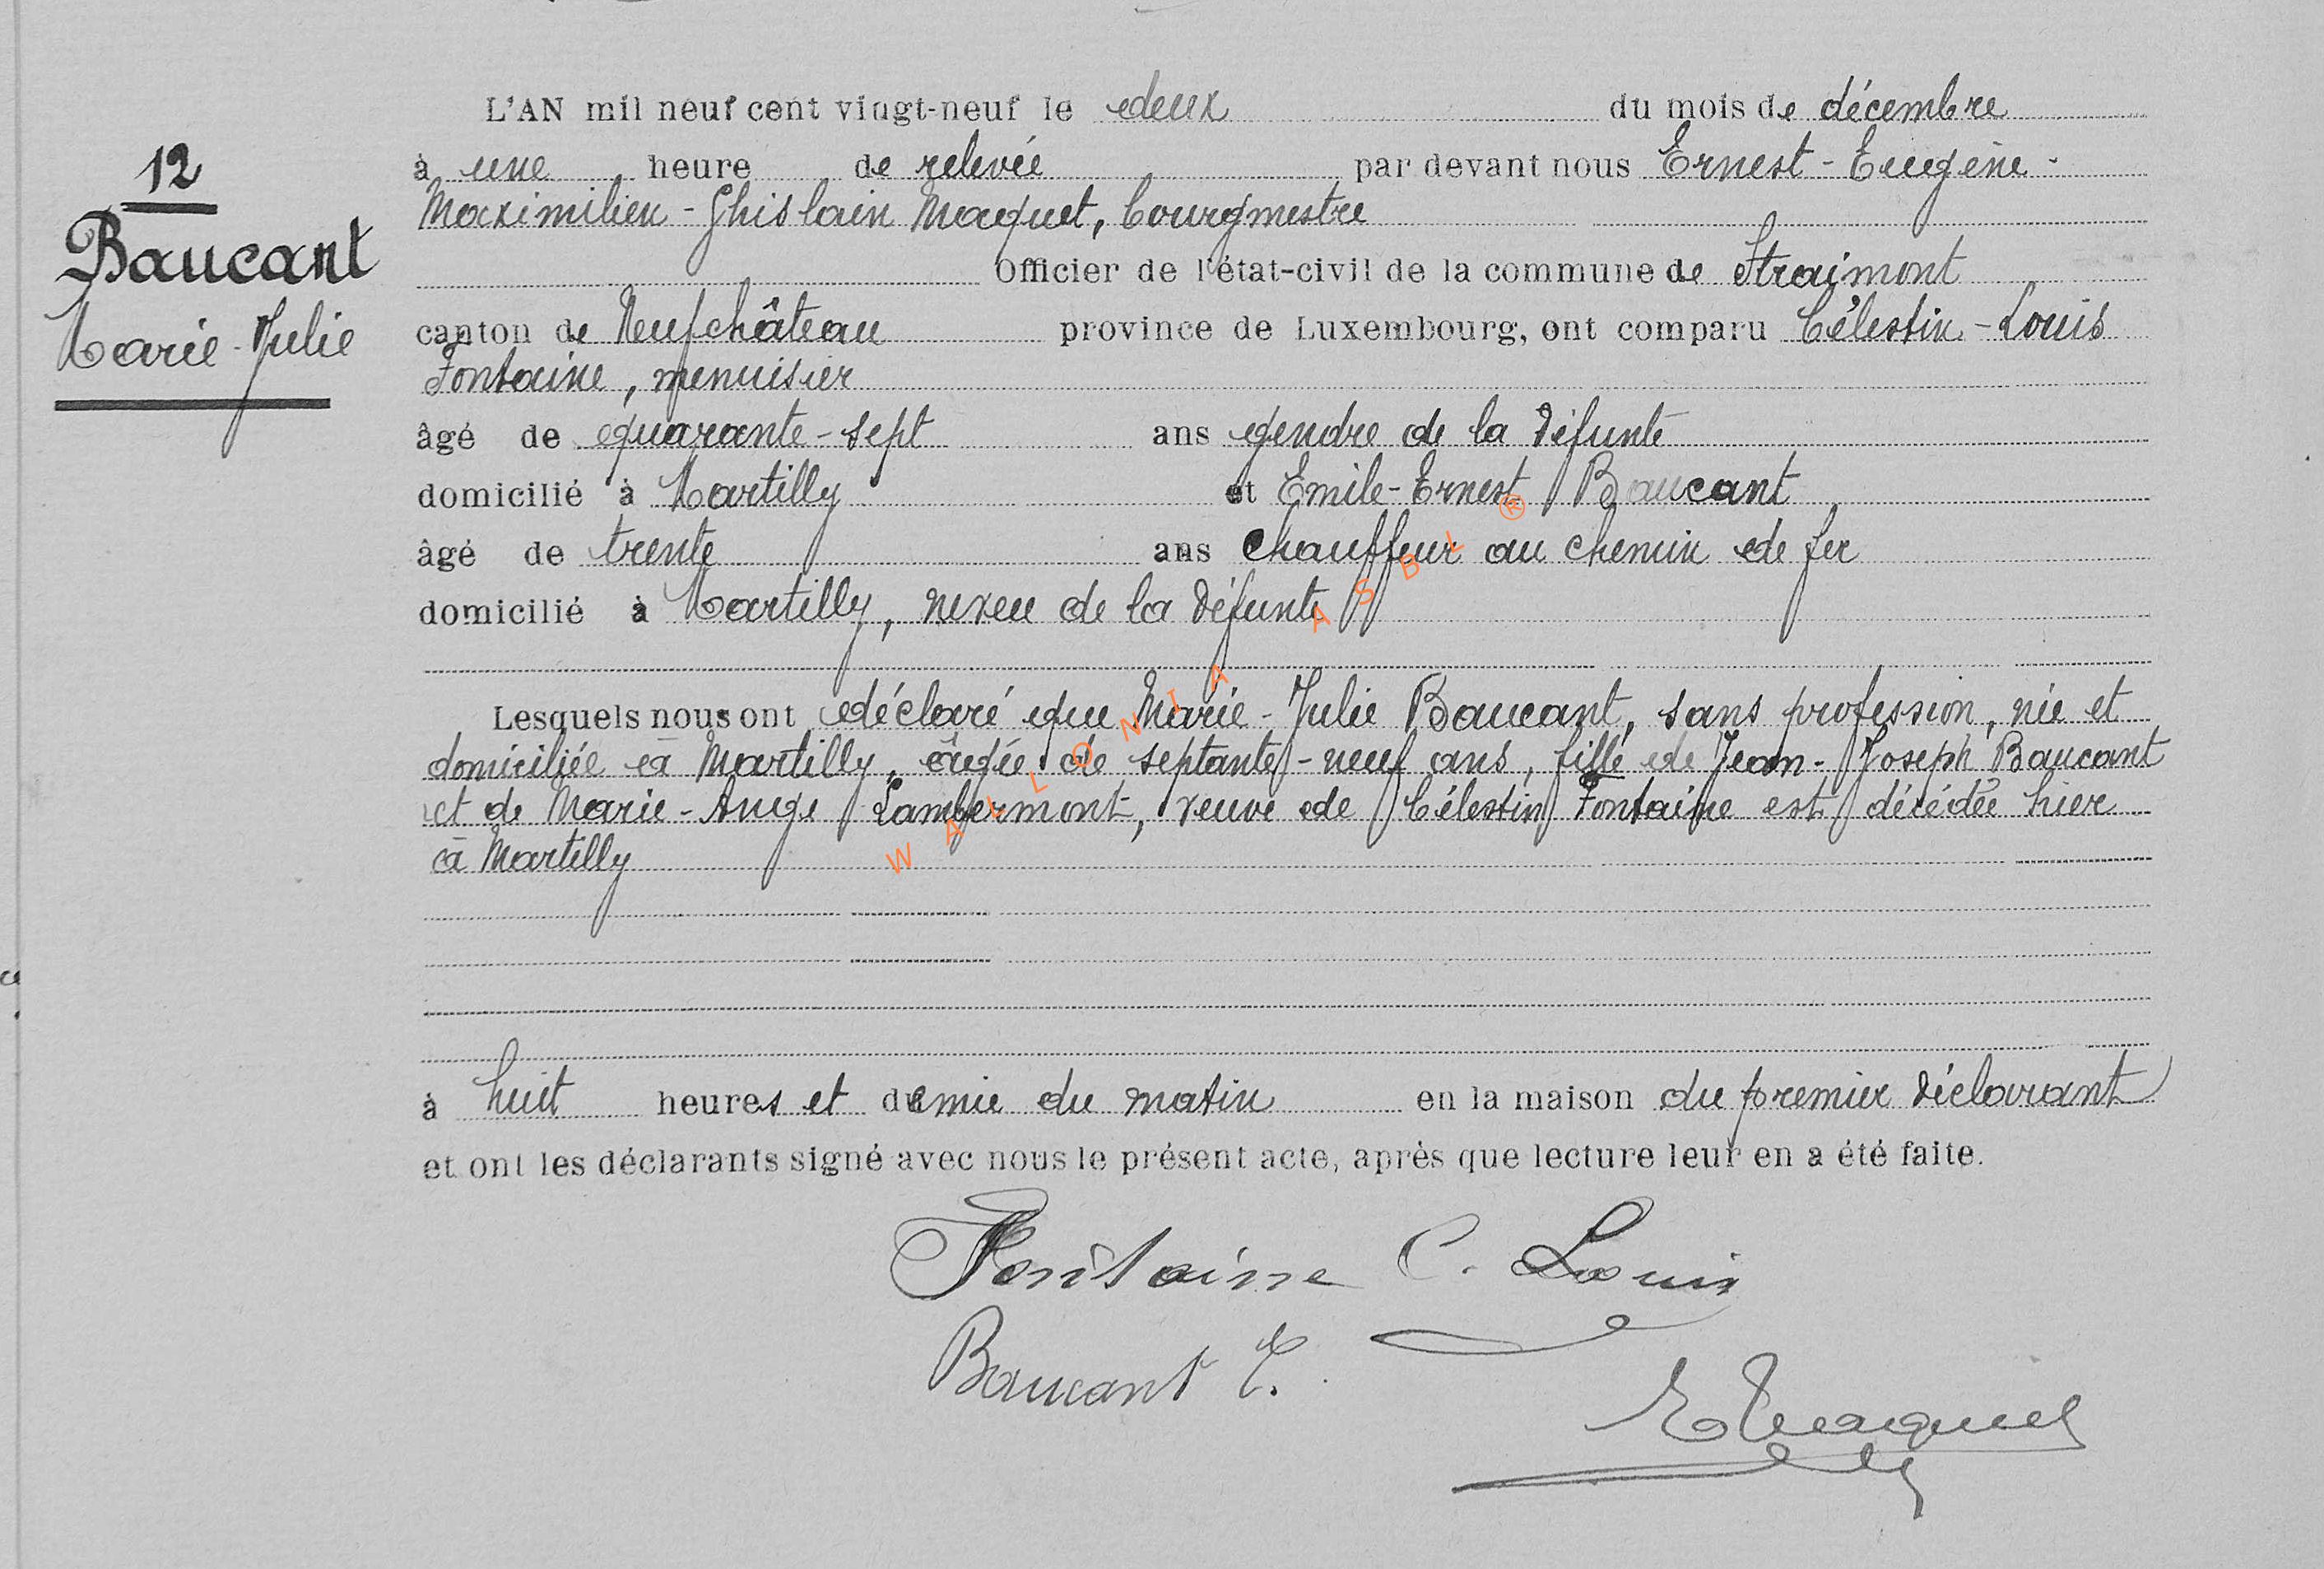 12
Baucant
Marie-Julie
L'AN mil neuf cent vingt-neuf le deux du mois de décembre
à une heure de relevée par devant nous Ernest-Eugène-
Maximilien-Ghislain Maquet, bourgmestre
Officier de l'état-civil de la commune de Straimont
canton de Neufchâteau province de Luxembourg, ont comparu Célestin-Louis
Fontaine, menuisier
âgé de quarante-sept ans gendre de la défunte
domicilié à Martilly et Emile-Ernest Baucant
âgé de trente ans chauffeur au chemin de fer
domicilié à Martilly, neveu de la défunte
Lesquels nous ont déclaré que Marie-Julie Baucant, sans profession, née et
domiciliée à Martilly, âgée de septante-neuf ans, fille de Jean-Joseph Baucant
et de Marie-Ange Lambermont, veuve de Célestin Fontaine est décédée hier
à Martilly
à huit heures et demie du matin en la maison du premier déclarant
et ont les déclarants signé avec nous le présent acte, après que lecture leur en a été faite.
Fontaine C. Louis
Baucant E.
E Maquet
WALLONIA ASBL ®